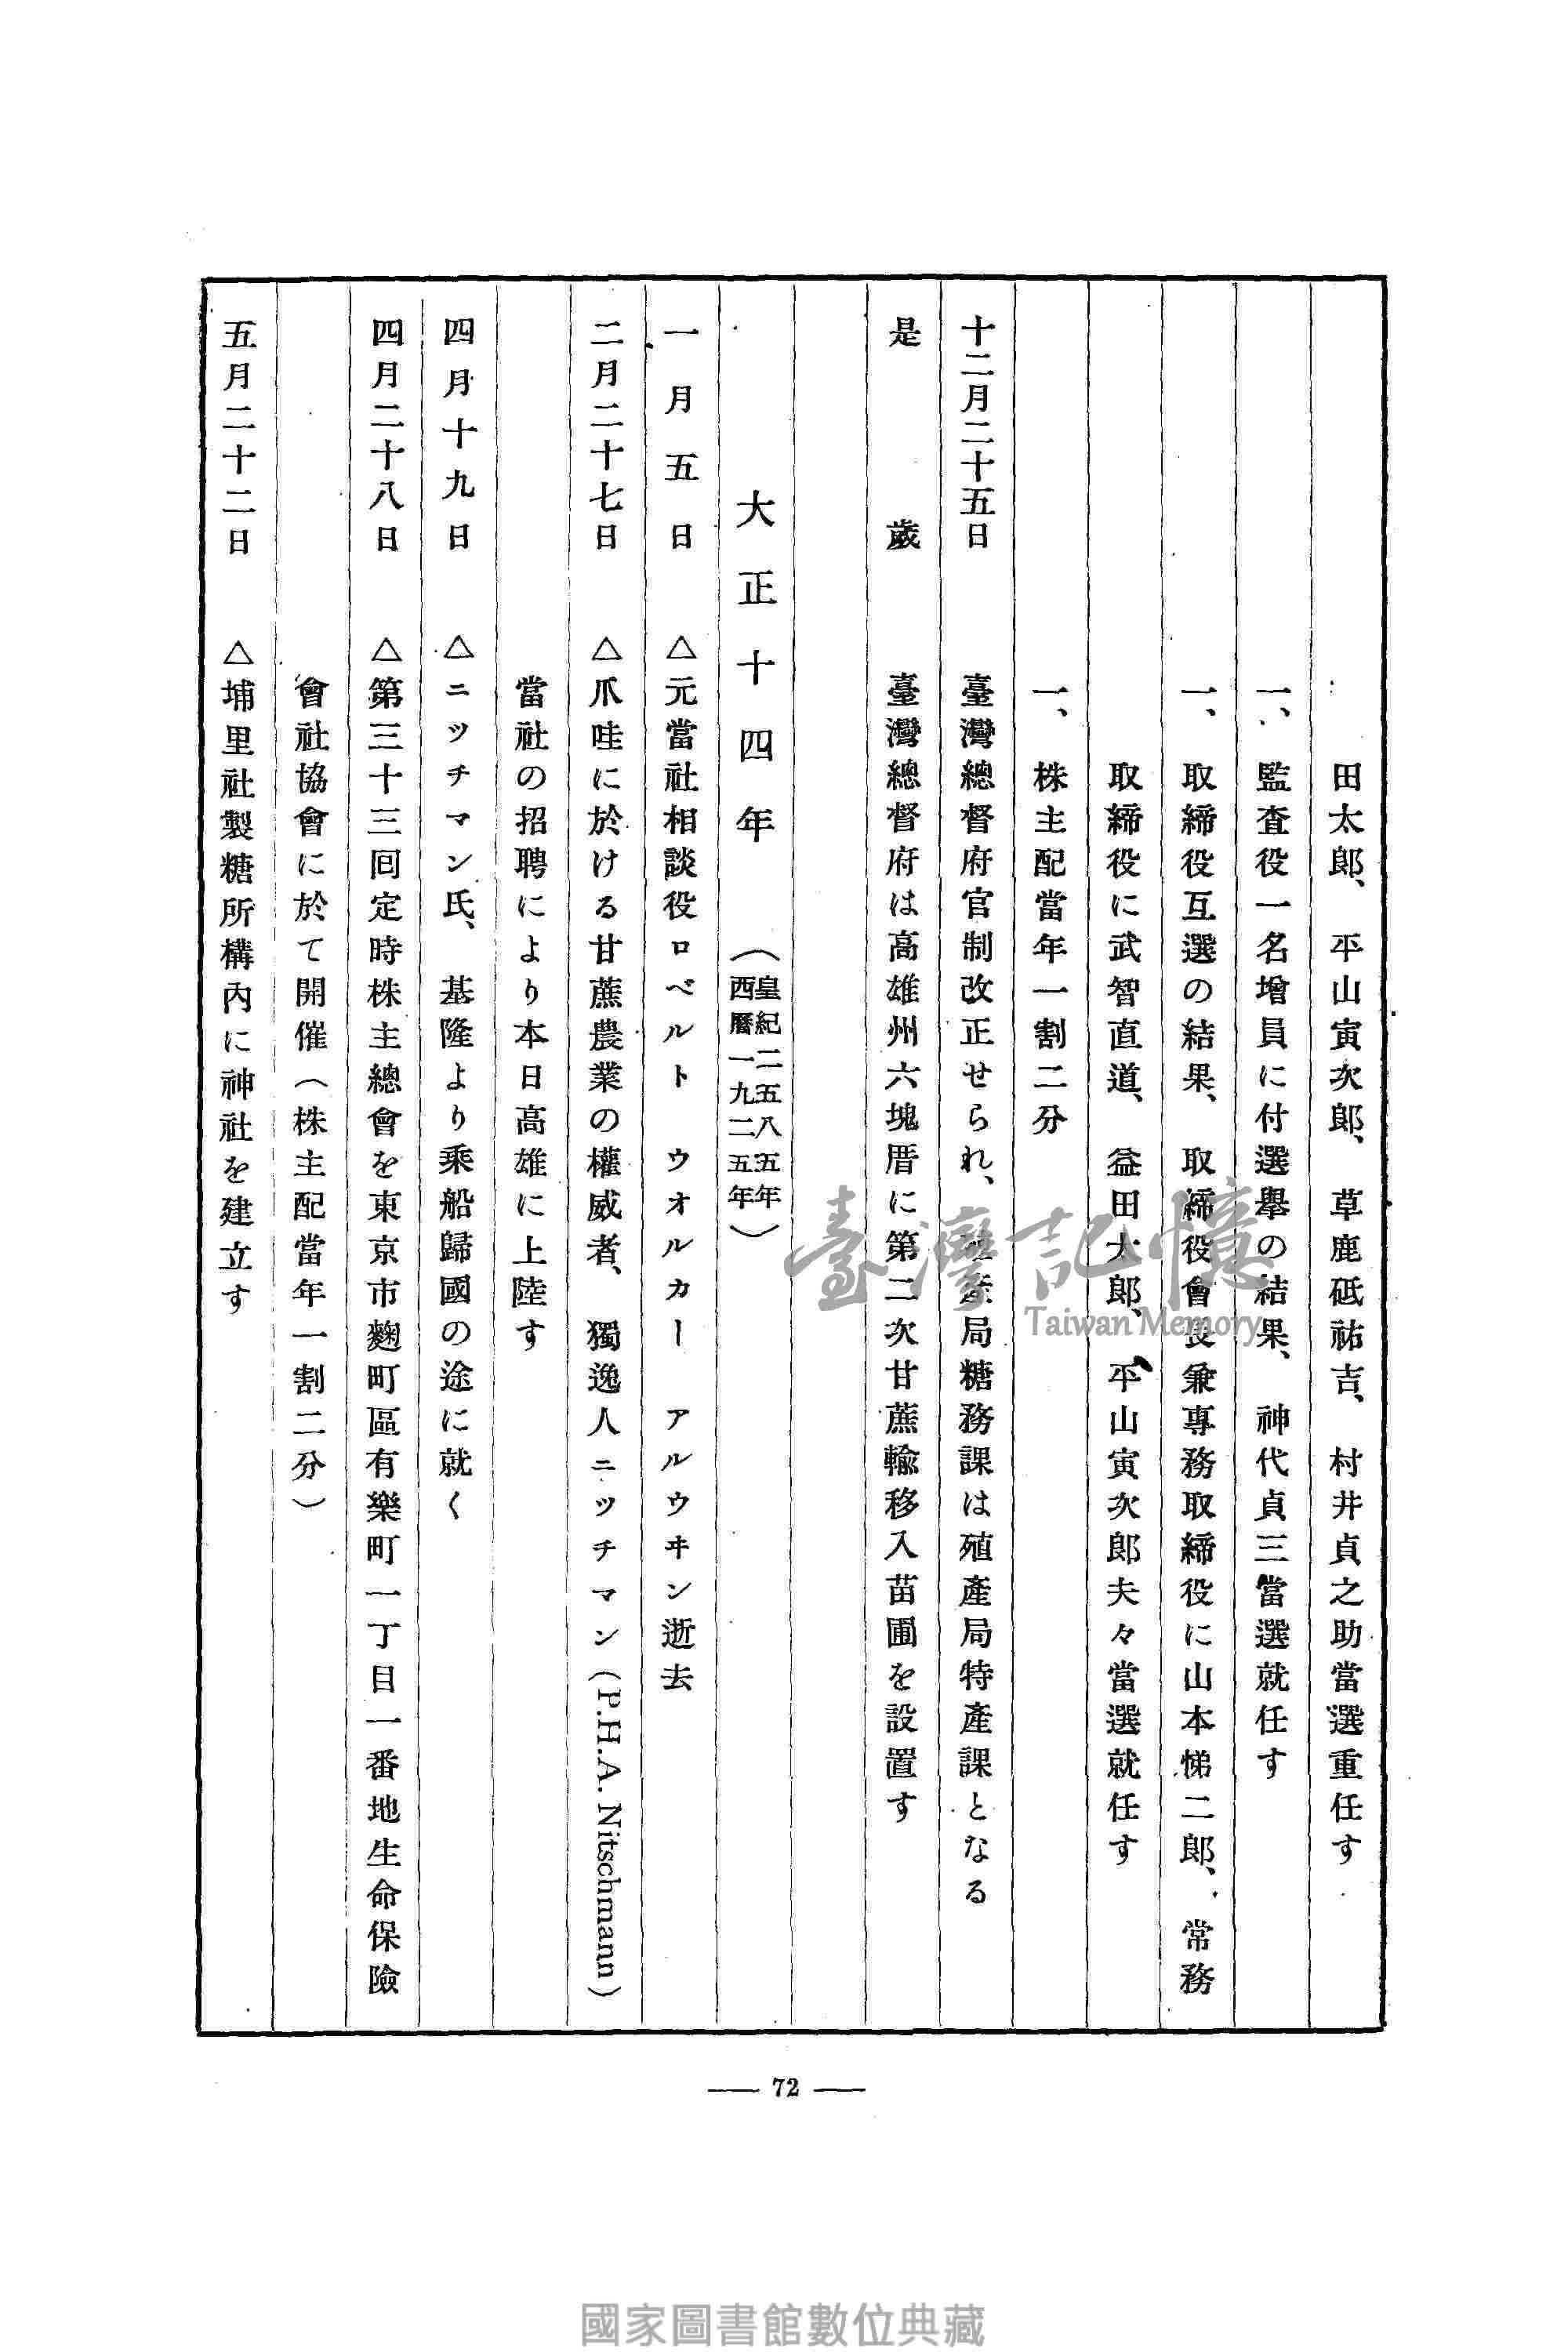 田太郎、平山寅次郎、草鹿砥祐吉、村井貞之助當選重任す
一、監査役一名增員に付選擧の結果、神代貞三當選就任す
一、取締役互選の結果、取締役會長兼專務取締役に山本悌二郎、常務
取締役に武智直道、益田太郎、平山寅次郎夫々當選就任す
一、株主配當年一割二分
十二月二十五日 臺灣總督府官制改正せられ、產局糖務課は殖產局特產課となる
是歲 臺灣總督府は高雄州六塊厝に第二次甘蔗輸移入苗圃を設置す
大正十四年(皇紀二五八五年
西曆一九二五年)
一月五日 △元當社相談役ロベルト ウオルカー アルウヰン逝去
二月二十七日 △爪哇に於ける甘蔗農業の權威者、獨逸人ニッチマン(P.H.A. Nitschmann)
當社の招聘により本日高雄に上陸す
四月十九日 △ニッチマン氏、基隆より乘船歸國の途に就く
四月二十八日 △第三十三回定時株主總會を東京市麴町區有樂町一丁目一番地生命保險
會社協會に於て開催(株主配當年一割二分)
五月二十二日 △埔里社製糖所構內に神社を建立す
臺灣記憶
Taiwan Memory
72
國家圖書館數位典藏